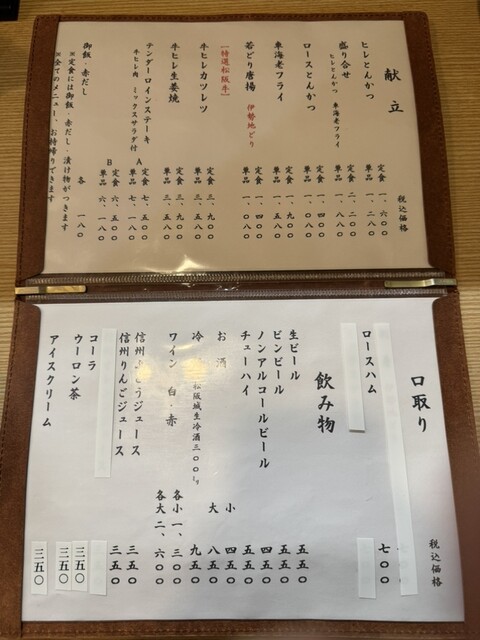 献立
税込価格
ヒレとんかつ
定食 一、六〇〇
単品 一、二八〇
盛り合せ
ヒレとんかつ 車海老フライ
定食 二、二〇〇
単品 一、八八〇
ロースとんかつ
定食 一、四〇〇
単品 一、〇八〇
車海老フライ
定食 一、九〇〇
単品 一、五八〇
若どり唐揚 伊勢地どり
定食 一、四〇〇
単品 一、〇八〇
【特選松阪牛】
牛ヒレカツレツ
定食 三、九〇〇
単品 三、五八〇
牛ヒレ生姜焼
定食 三、九〇〇
単品 三、五八〇
テンダーロインステーキ
牛ヒレ肉 ミックスサラダ付
A 定食 七、五〇〇
単品 七、一八〇
B 定食 六、五〇〇
単品 六、一八〇
御飯・赤だし 各 一八〇
※定食には御飯・赤だし・漬け物がつきます
※全てのメニュー、お持帰りできます
口取り
税込価格
ロースハム 七〇〇
飲み物
生ビール 五五〇
ビンビール 五五〇
ノンアルコールビール 四五〇
チューハイ 五五〇
お酒 小 四五〇
大 八五〇
冷 松阪城生冷酒三〇〇ミリ 九五〇
ワイン 白・赤 各小 一、三〇〇
各大 二、六〇〇
信州ぶどうジュース 三五〇
信州りんごジュース 三五〇
コーラ 三五〇
ウーロン茶 三五〇
アイスクリーム 三五〇